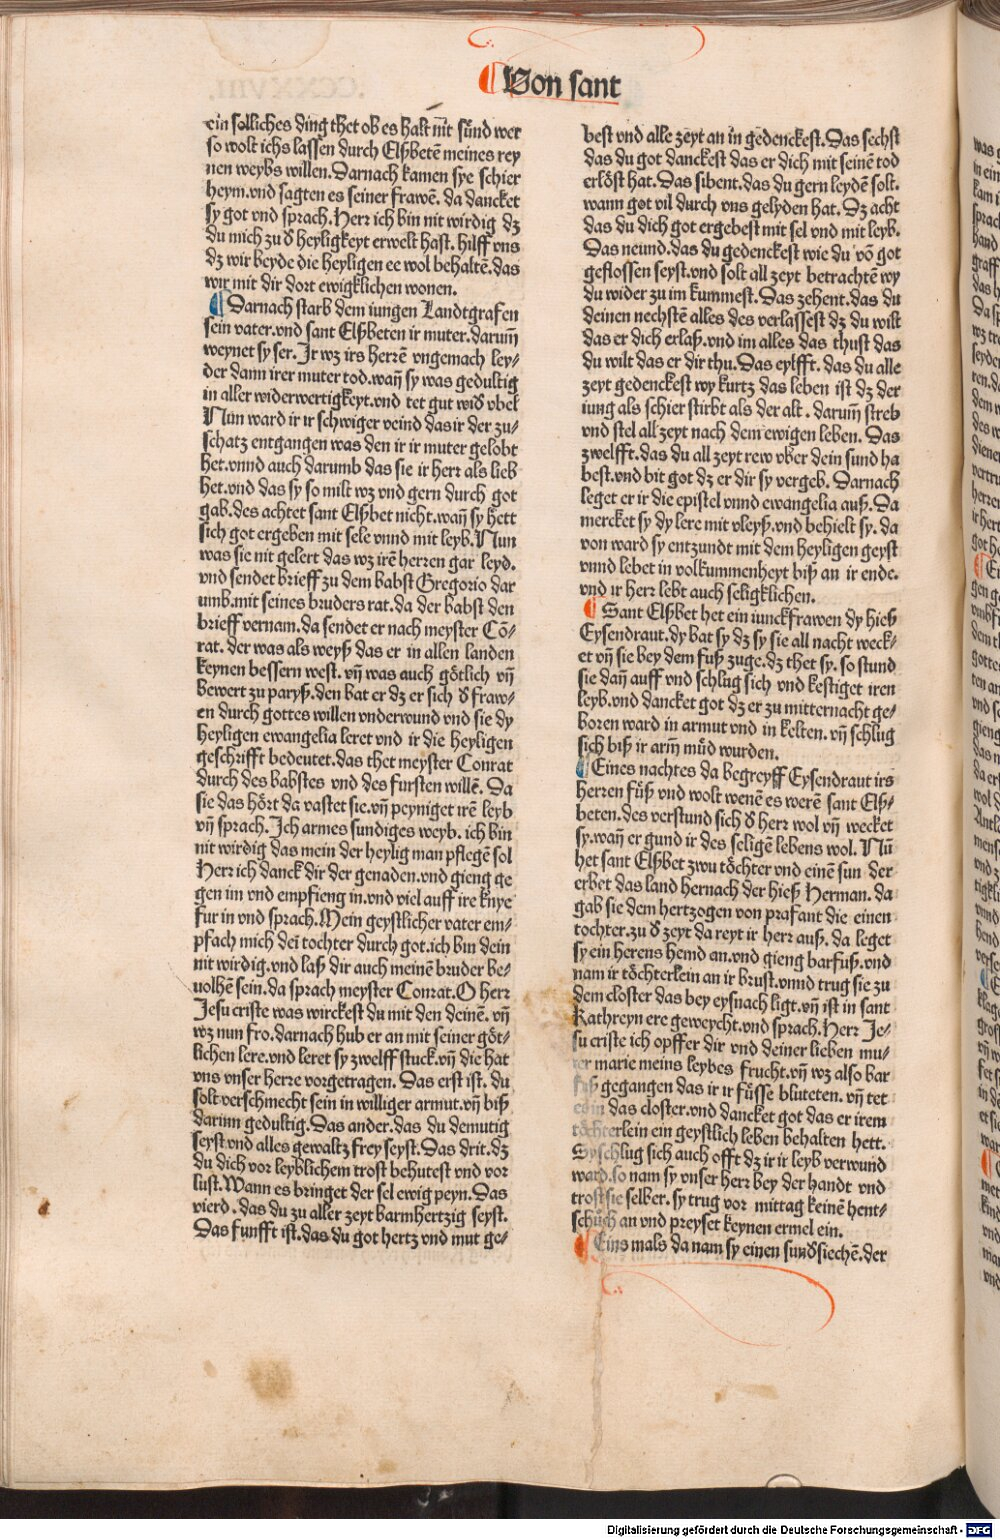 Von sant
ein sölliches ding thet ob es halt nit sünd wer
so wolt ichs lassen durch Elßbetē meines rey
nen weybs willen. Darnach kamen sye schier
heym. vnd sagten es seiner frawē. da dancket
sy got vnd sprach. Herr ich bin nit wirdig dz
du mich zu d̄ heyligkeyt erwelt hast. hilff vns
dz wir beyde die heyligen ee wol behaltē. das
wir mit dir dort ewigklichen wonen.
Darnach starb dem iungen Landtgrafen
sein vater. vnd sant Elßbeten ir muter. darum̄
weynet sy ser. Ir wz irs herrē vngemach ley⸗
der dann irer muter tod. wan̄ sy was gedultig
in aller widerwertigkeyt. vnd tet gut wid̄ vbel
Nun ward ir ir schwiger veind das ir der zu⸗
schatz entgangen was den ir ir muter gelobt
het. vnnd auch darumb das sie ir herr als lieb
het. vnd das sy so milt wz vnd gern durch got
gab. des achtet sant Elßbet nicht. wan̄ sy hett
sich got ergeben mit sele vnnd mit leyb. Nun
was sie nit gelert das wz irē herren gar leyd.
vnd sendet brieff zu dem babst Gregorio dar
umb. mit seines bruders rat. da der babst den
brieff vernam. da sendet er nach meyster Cō⸗
rat. der was als weyß das er in allen landen
keynen bessern west. vn̄ was auch götlich vn̄
bewert zu paryß. den bat er dz er sich d̄ fraw⸗
en durch gottes willen vnderwund vnd sie dy
heyligen ewangelia leret vnd ir die heyligen
geschrifft bedeutet. das thet meyster Conrat
durch des babstes vnd des fursten willē. Da
sie das hört da vastet sie. vn̄ peyniget irē leyb
vn̄ sprach. Ich armes sundiges weyb. ich bin
nit wirdig das mein der heylig man pflegē sol
Herr ich danck dir der genaden. vnd gieng ge
gen im vnd empfieng in. vnd viel auff ire knye
fur in vnd sprach. Mein geystlicher vater em⸗
pfach mich dei tochter durch got. ich bin dein
nit wirdig. vnd laß dir auch meinē bruder be⸗
uolhē sein. da sprach meyster Conrat. O herr
Jesu criste was wirckest du mit den deinē. vn̄
wz nun fro. darnach hub er an mit seiner göt⸗
lichen lere. vnd leret sy zwelff stuck. vn̄ die hat
vns vnser herre vorgetragen. Das erst ist. du
solt verschmecht sein in williger armut. vn̄ biß
darinn gedultig. Das ander. das du demutig
seyst vnd alles gewaltz frey seyst. Das drit. dz
du dich vor leyblichem trost behutest vnd vor
lust. Wann es bringet der sel ewig peyn. Das
vierd. das du zu aller zeyt barmhertzig seyst.
Das funfft ist. das du got hertz vnd mut ge⸗
best vnd alle zeyt an in gedenckest. Das sechst
das du got danckest das er dich mit seinē tod
erlöst hat. Das sibent. das du gern leydē solt.
wann got vil durch vns gelyden hat. Dz acht
das du dich got ergebest mit sel vnd mit leyb.
Das neund. das du gedenckest wie du vō got
geflossen seyst. vnd solt all zeyt betrachtē wy
du wider zu im kummest. Das zehent. das du
deinen nechstē alles des verlassest dz du wilt
das er dich erlaß. vnd im alles das thust das
du wilt das er dir thu. Das eylfft. das du alle
zeyt gedenckest wy kurtz das leben ist dz der
iung als schier stirbt als der alt. darum̄ streb
vnd stel all zeyt nach dem ewigen leben. Das
zwelfft. das du all zeyt rew vber dein sund ha
best. vnd bit got dz er dir sy vergeb. Darnach
leget er ir die epistel vnnd ewangelia auß. Da
mercket sy dy lere mit vleyß. vnd behielt sy. da
von ward sy entzundt mit dem heyligen geyst
vnnd lebet in volkummenheyt biß an ir ende.
vnd ir herr lebt auch seligklichen.
Sant Elßbet het ein iunckfrawen dy hieß
Eysendraut. dy bat sy dz sy sie all nacht weck⸗
et vn̄ sie bey dem fuß zuge. dz thet sy. so stund
sie dan̄ auff vnd schlug sich vnd kestiget iren
leyb. vnd dancket got dz er zu mitternacht ge⸗
boren ward in armut vnd in kelten. vn̄ schlug
sich biß ir arm müd wurden.
Eines nachtes da begreyff Eysendraut irs
herren füß vnd wolt wenē es werē sant Elß⸗
beten. des verstund sich d̄ herr wol vn̄ wecket
sy. wan̄ er gund ir des seligē lebens wol. Nū
het sant Elßbet zwu töchter vnd einē sun der
erbet das land hernach der hieß Herman. da
gab sie dem hertzogen von prafant die einen
tochter. zu d̄ zeyt da reyt ir herr auß. da leget
sy ein herens hemd an. vnd gieng barfuß. vnd
nam ir töchterlein an ir brust. vnnd trug sie zu
dem closter das bey eysnach ligt. vn̄ ist in sant
Kathreyn ere geweycht. vnd sprach. Herr Je⸗
su criste ich opffer dir vnd deiner lieben mu⸗
ter marie meins leybes frucht. vn̄ wz also bar
fuß gegangen das ir ir füsse bluteten. vn̄ tet
das closter. vnd dancket got das er irem
töchterlein ein geystlich leben behalten hett.
Sy schlug sich auch offt dz ir ir leyb verwund
ward. so nam sy vnser herr bey der handt vnd
trost sie selber. sy trug vor mittag keinē hent⸗
schüch an vnd preyset keynen ermel ein.
Eins mals da nam sy einen sund̄siechē. der
Digitalisierung gefördert durch die Deutsche Forschungsgemeinschaft - DFG